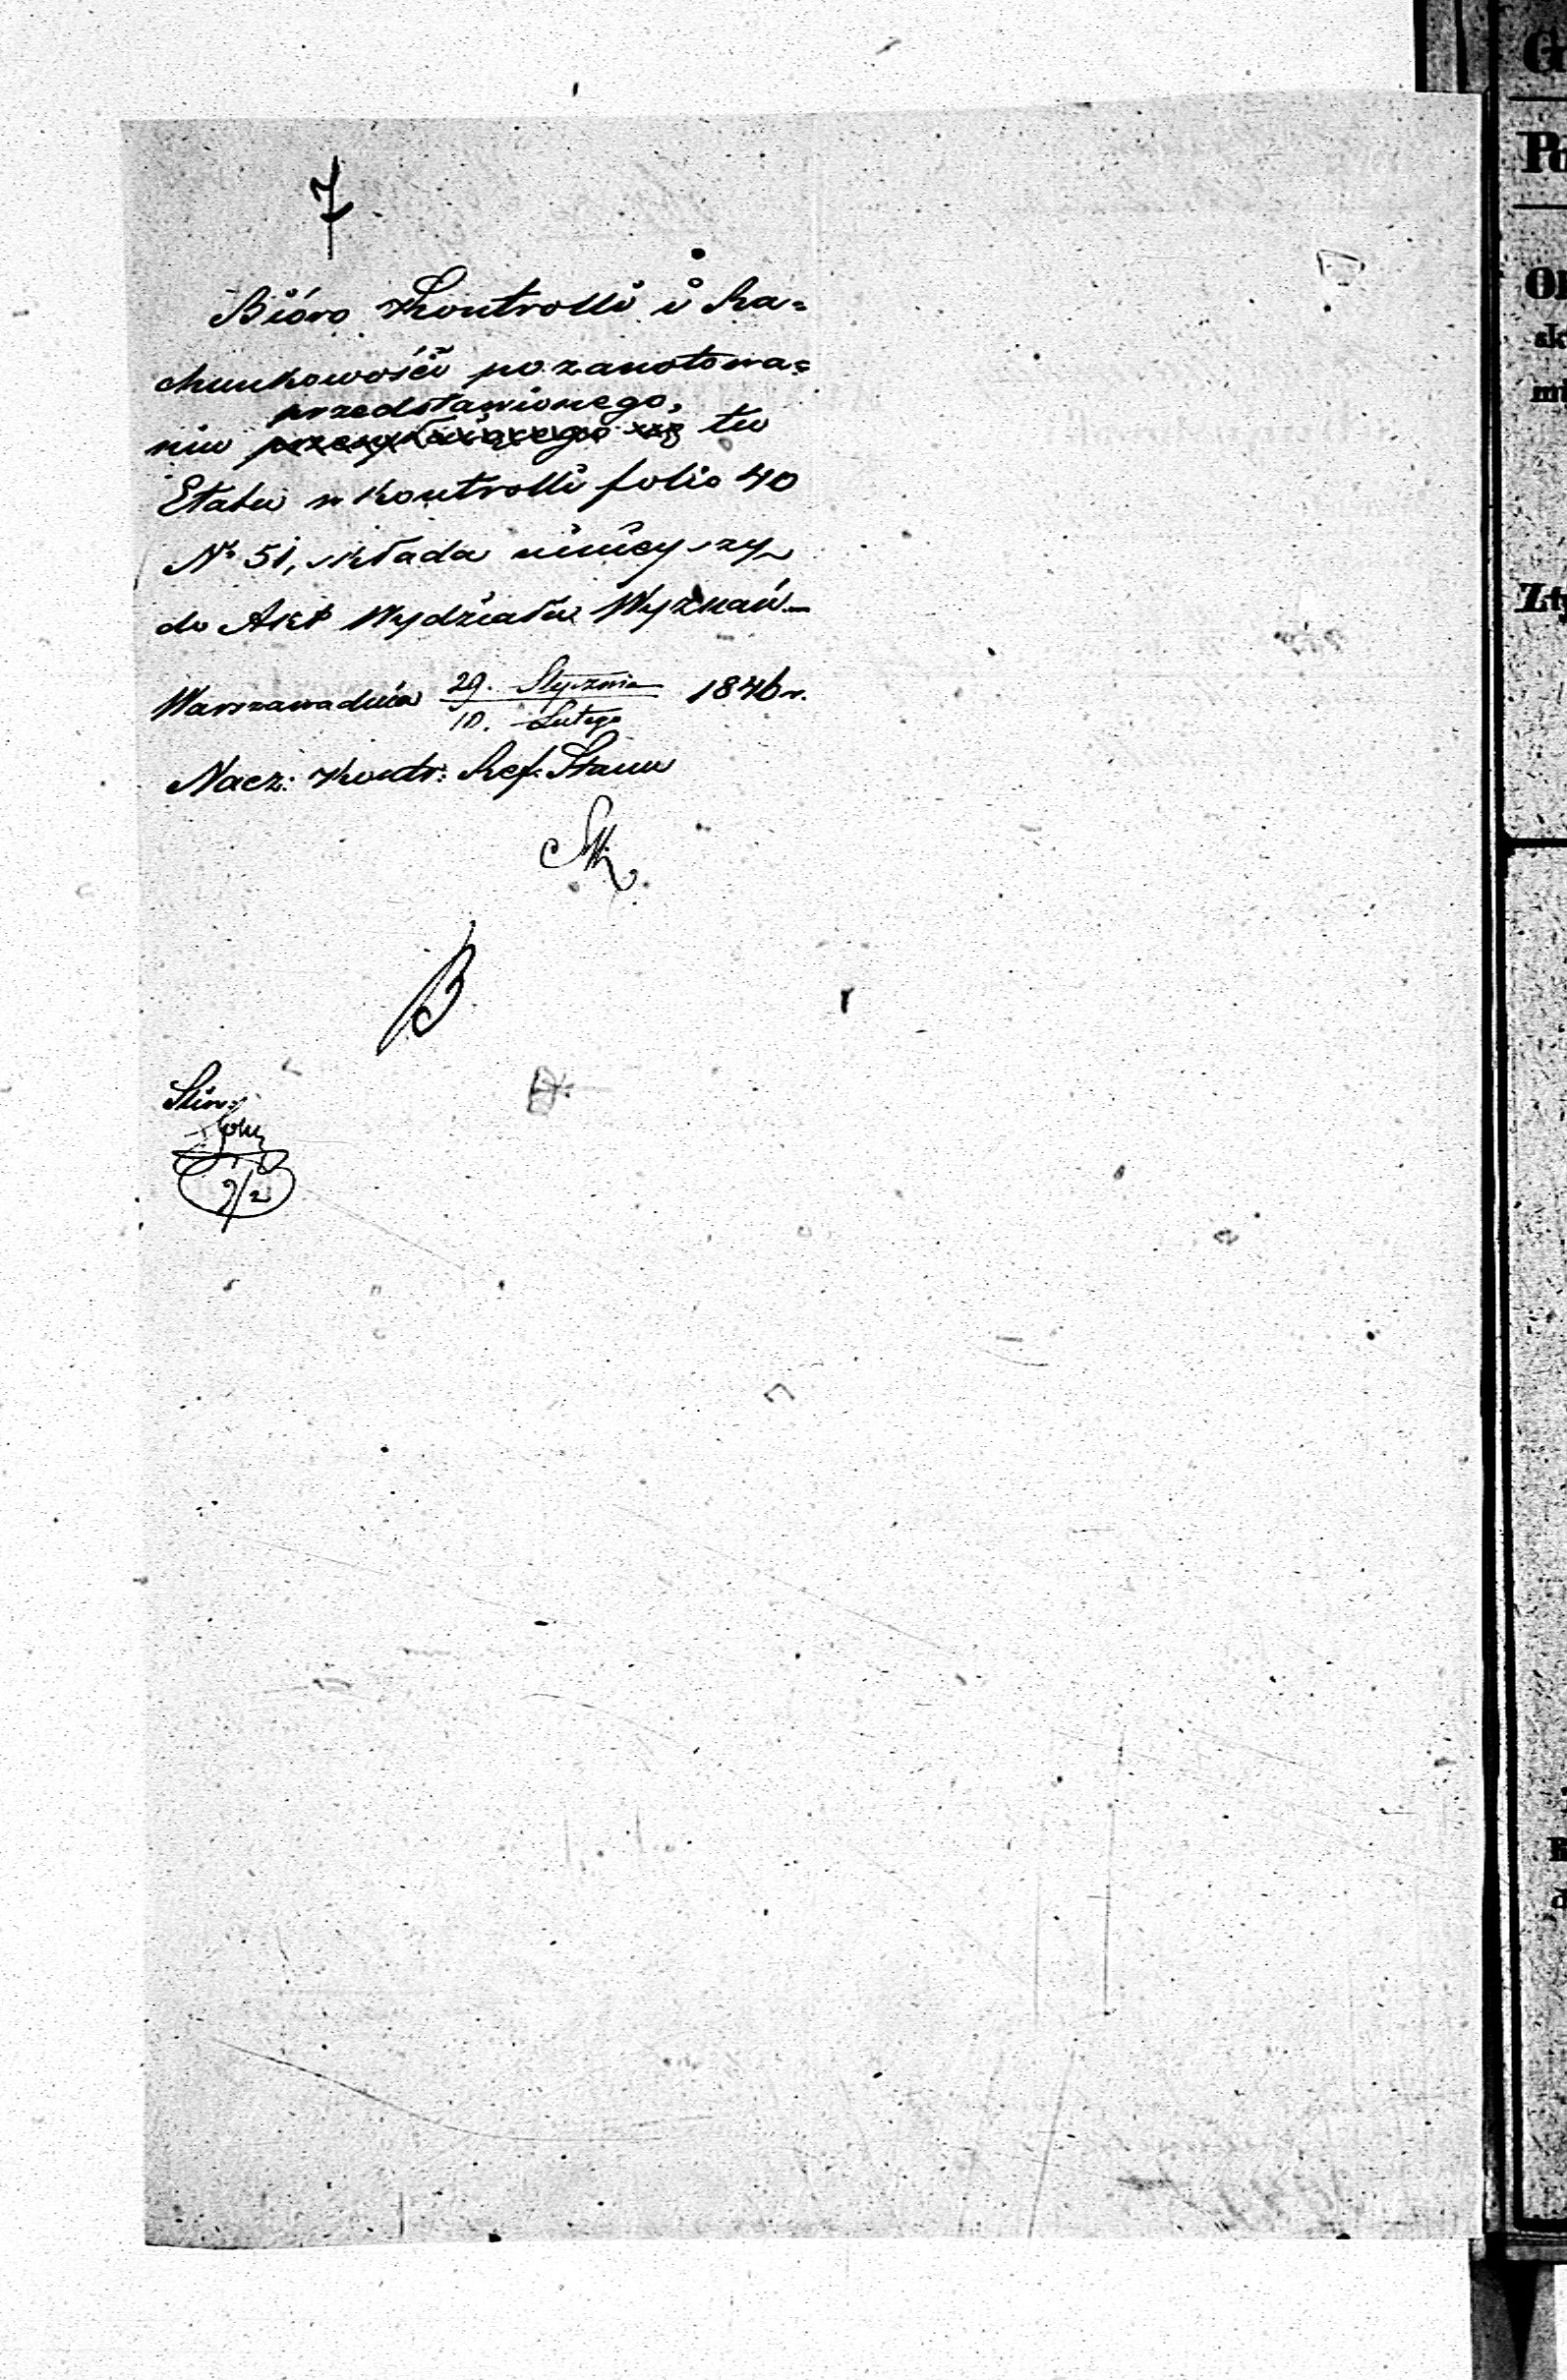 7
Bióro Kontrolli i Ra=
chunkowości po zanotowa=
przedstawionego,
niu tu
Etatu w Kontrolli folio 40
№ 51, składa niniejszy
do Akt Wydziału Wyznań
Warszawa dnia 29. Stycznia 1846 r.
10. Lutego
Nacz: Kontr: Ref. Stanu
B
9/2
G
Po
Ob
sk
Zty